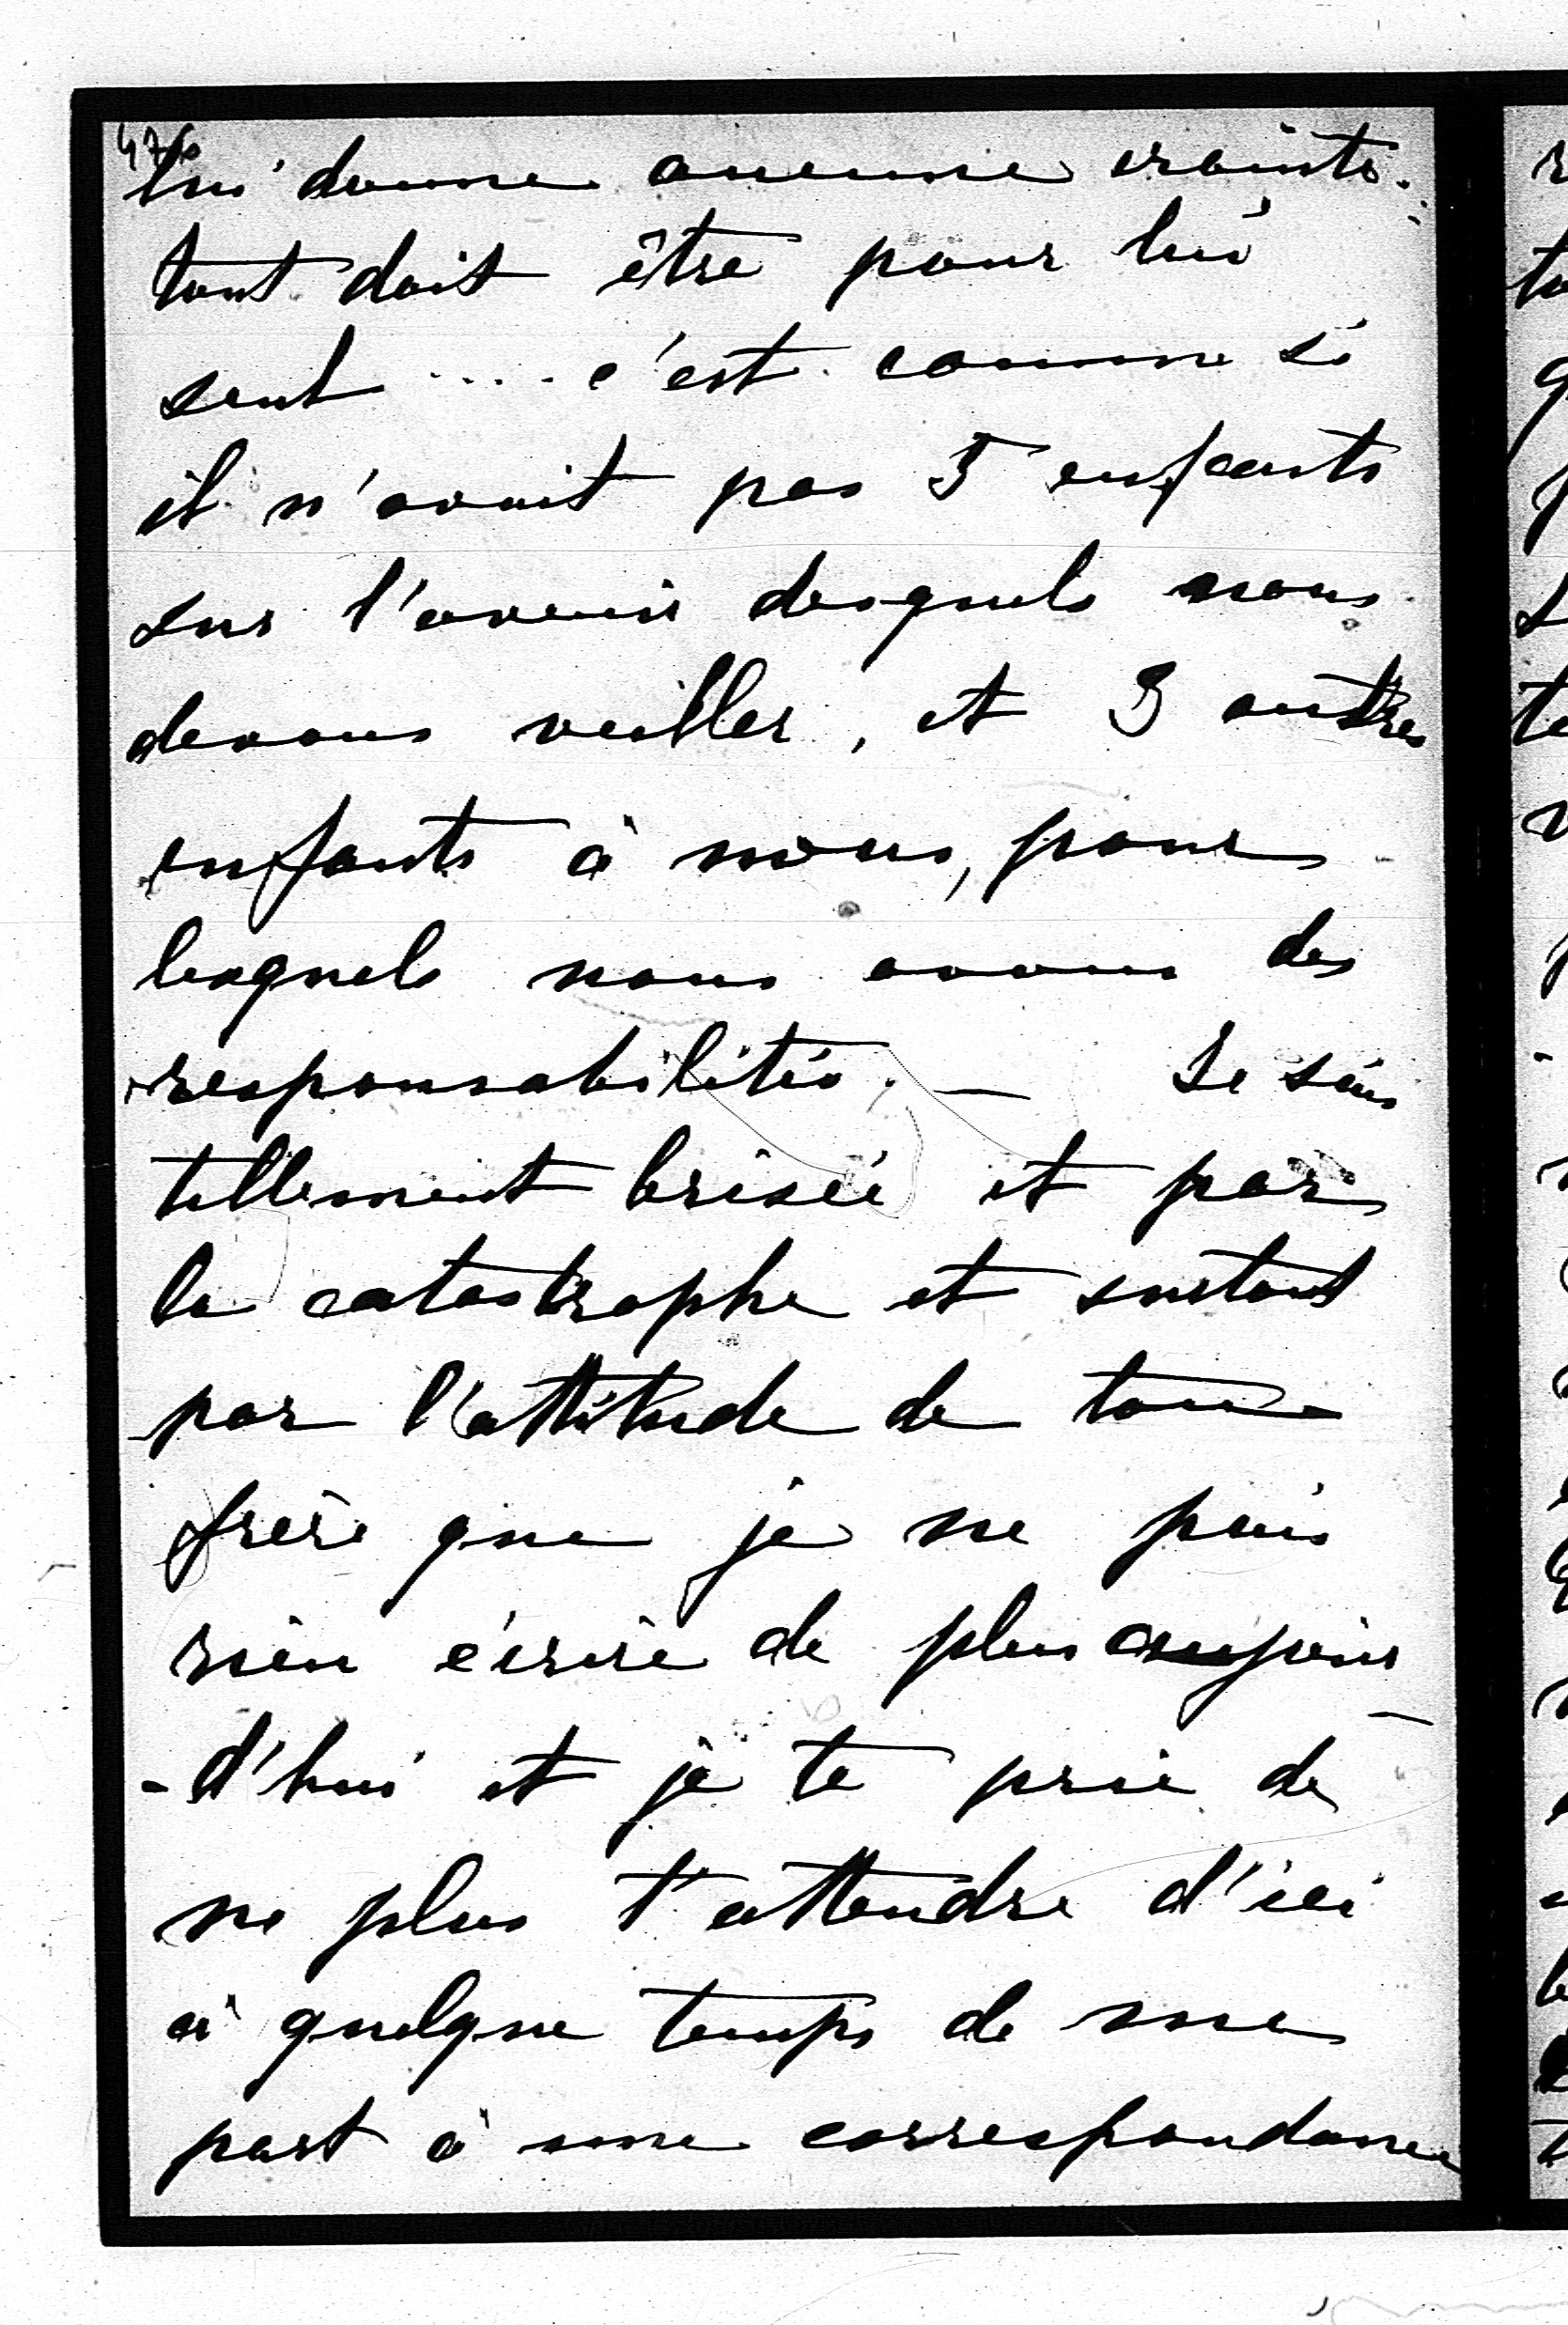 lui donne aucune crainte.
tout doit être pour lui
seul .... c'est comme si
il n'avait pas 5 enfants
sur l'avenir desquels nous
devons veiller, et 3 autres
enfants à nous, pour
lesquels nous avons des
responsabilités. — Je suis
tellement brisée et par
la catastrophe et surtout
par l'attitude de ton
frère que je ne puis
rien écrire de plus aujour
-d'hui et je te prie de
ne plus t'attendre d'ici
à quelque temps de ma
part à une correspondance